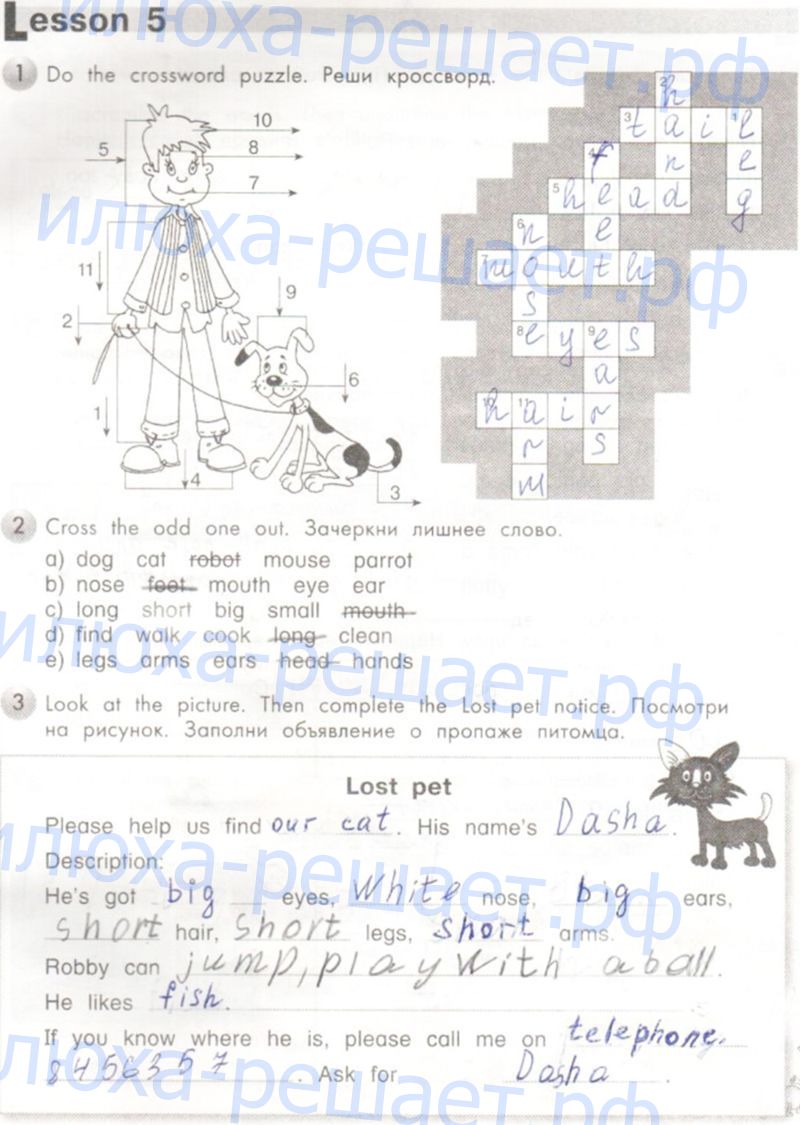 Lesson 5
1 Do the crossword puzzle. Реши кроссворд.
10
5
8
7
11
9
2
6
1
4
3
2 h
3 t a i 1 l
4 f n e
5 h e a d g
6 n e
7 m o u t h
s
8 e y 9 e s
a
10 h 11 a i r
r s
m
2 Cross the odd one out. Зачеркни лишнее слово.
a) dog cat robot mouse parrot
b) nose feet mouth eye ear
c) long short big small mouth
d) find walk cook long clean
e) legs arms ears head hands
3 Look at the picture. Then complete the Lost pet notice. Посмотри
на рисунок. Заполни объявление о пропаже питомца.
Lost pet
Please help us find our cat. His name's Dasha.
Description:
He's got big eyes, white nose, big ears,
short hair, short legs, short arms.
Robby can jump, play with a ball.
He likes fish.
If you know where he is, please call me on telephone.
8456357. Ask for Dasha.
илюха-решает.рф
илюха-решает.рф
илюха-решает.рф
илюха-решает.рф
илюха-решает.рф